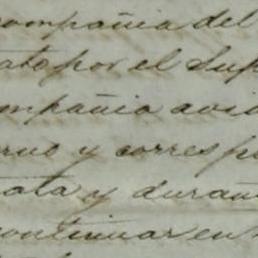 compañia del
ato por el Sup
ompañia avis
erno y corresp
rata y durañ
continuar en